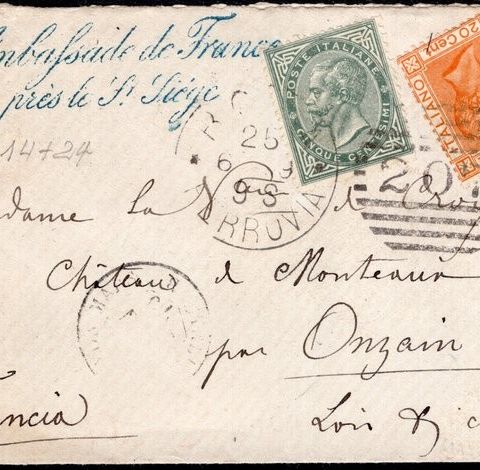 mbassade de France
près le St Siége
14+24
POSTE ITALIANE
CINQUE CENTESIMI
20 Cen
ITALIANO
25
6
93
RROVIA
201
adame la
de
Château de Monteaux
par Onzain
ncia
Loir &